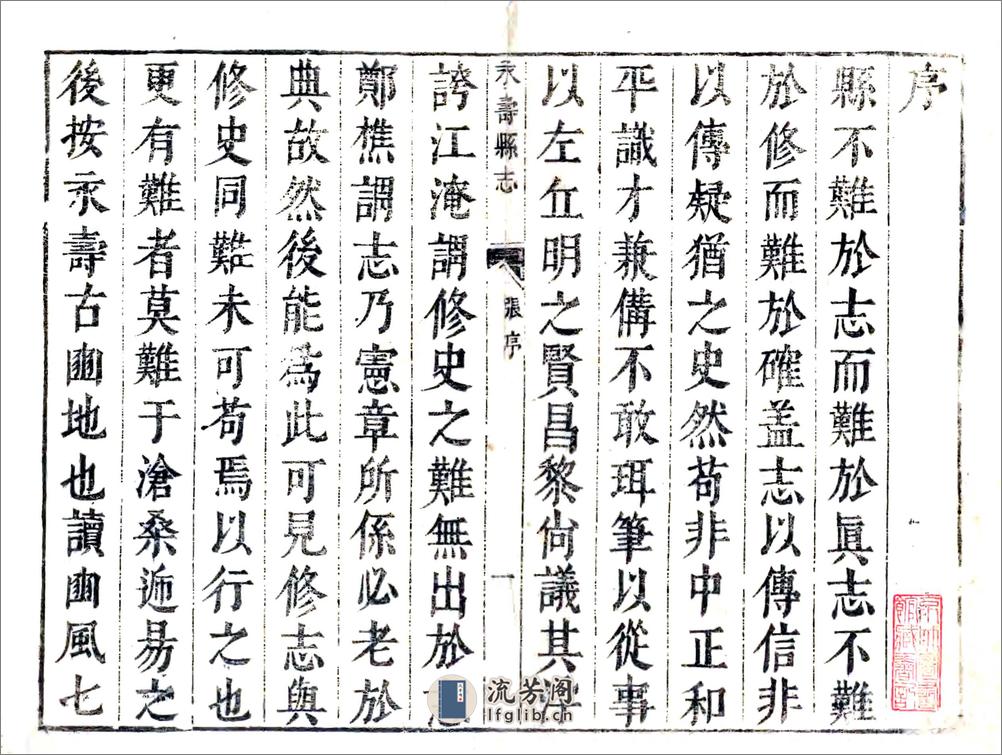 序
縣不難於志而難於眞志不難
於修而難於確盖志以傳信非
以傳疑猶之史然苟非中正和
平識才兼備不敢珥筆以從事
以左丘明之賢昌黎尙議其浮
誇江淹謂修史之難無出於
永壽縣志
張序
一
鄭樵謂志乃憲章所係必老於
典故然後能爲此可見修志與
修史同難未可苟焉以行之也
更有難者莫難于滄桑遞易之
後按永壽古豳地也讀豳風七
流芳阁
lfglib.cn